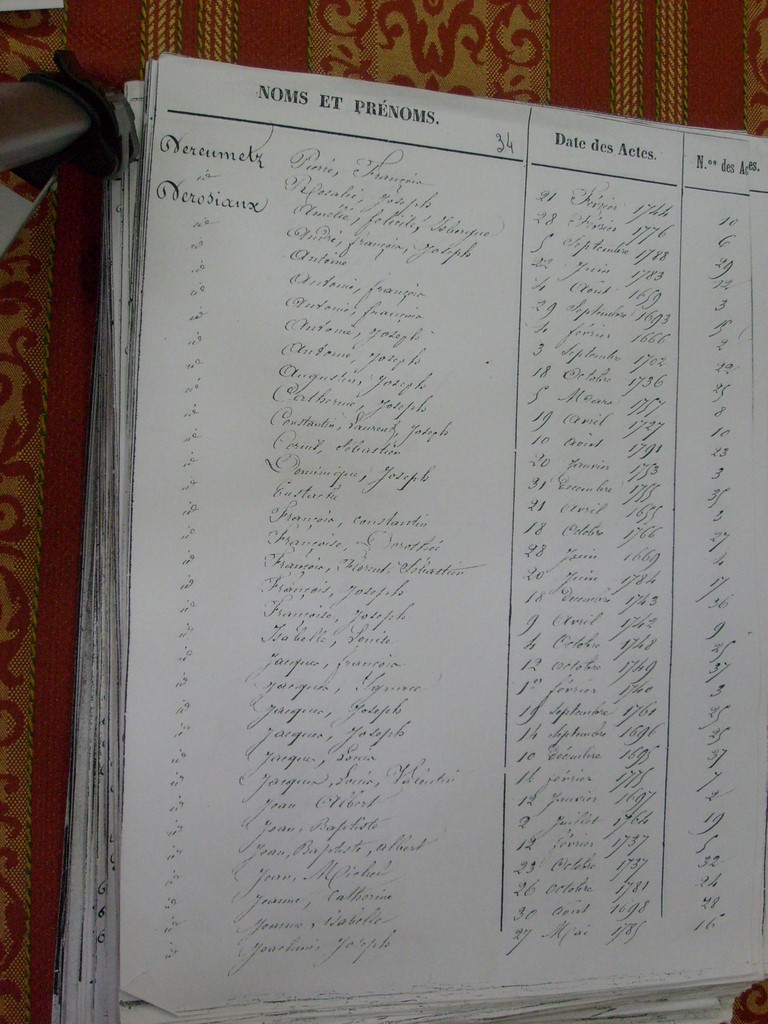 NOMS ET PRÉNOMS. 34 Date des Actes. N.os des Actes.
Dereumetz Pierre, François 21 Février 1744 10
id Rosalie, Joseph 28 Février 1776 6
Derosiaux Amélie, félicité, Isbergue 5 Septembre 1788 29
id André, françois, Joseph 22 Juin 1783 12
id Antoine 4 Août 1659 3
id Antoine, françois 29 Septembre 1693 15
id Antoine, françois 4 février 1666 2
id Antoine, Joseph 3 Septembre 1702 22
id Antoine, Joseph 18 Octobre 1736 25
id Augustin, Joseph 5 Mars 1757 8
id Catherine, Joseph 19 avril 1727 10
id Constantin, Laurent, Joseph 10 août 1791 23
id Cornil, Sébastien 20 Janvier 1753 3
id Dominique, Joseph 31 Décembre 1755 35
id Eustache 21 avril 1655 3
id François, constantin 18 Octobre 1766 27
id Françoise, Dorothée 28 Juin 1669 4
id François, Florent, Sébastien 20 Juin 1784 17
id François, Joseph 18 Décembre 1743 36
id Françoise, Joseph 9 Avril 1742 9
id Isabelle, Louise 4 Octobre 1748 25
id Jacques, françois 12 octobre 1749 37
id Jacques, Ignace 1er février 1740 3
id Jacques, Joseph 19 Septembre 1761 25
id Jacques, Joseph 14 Septembre 1696 25
id Jacques, Louis 10 décembre 1695 37
id Jacques, Louis, Valentin 16 février 1775 7
id Jean Albert 12 Janvier 1697 2
id Jean, Baptiste 2 Juillet 1764 19
id Jean, Baptiste, albert 12 février 1737 5
id Jean, Michel 23 Octobre 1737 32
id Jeanne, Catherine 26 octobre 1781 24
id Jeanne, Isabelle 30 août 1698 28
id Joachim, Joseph 27 Mai 1785 16